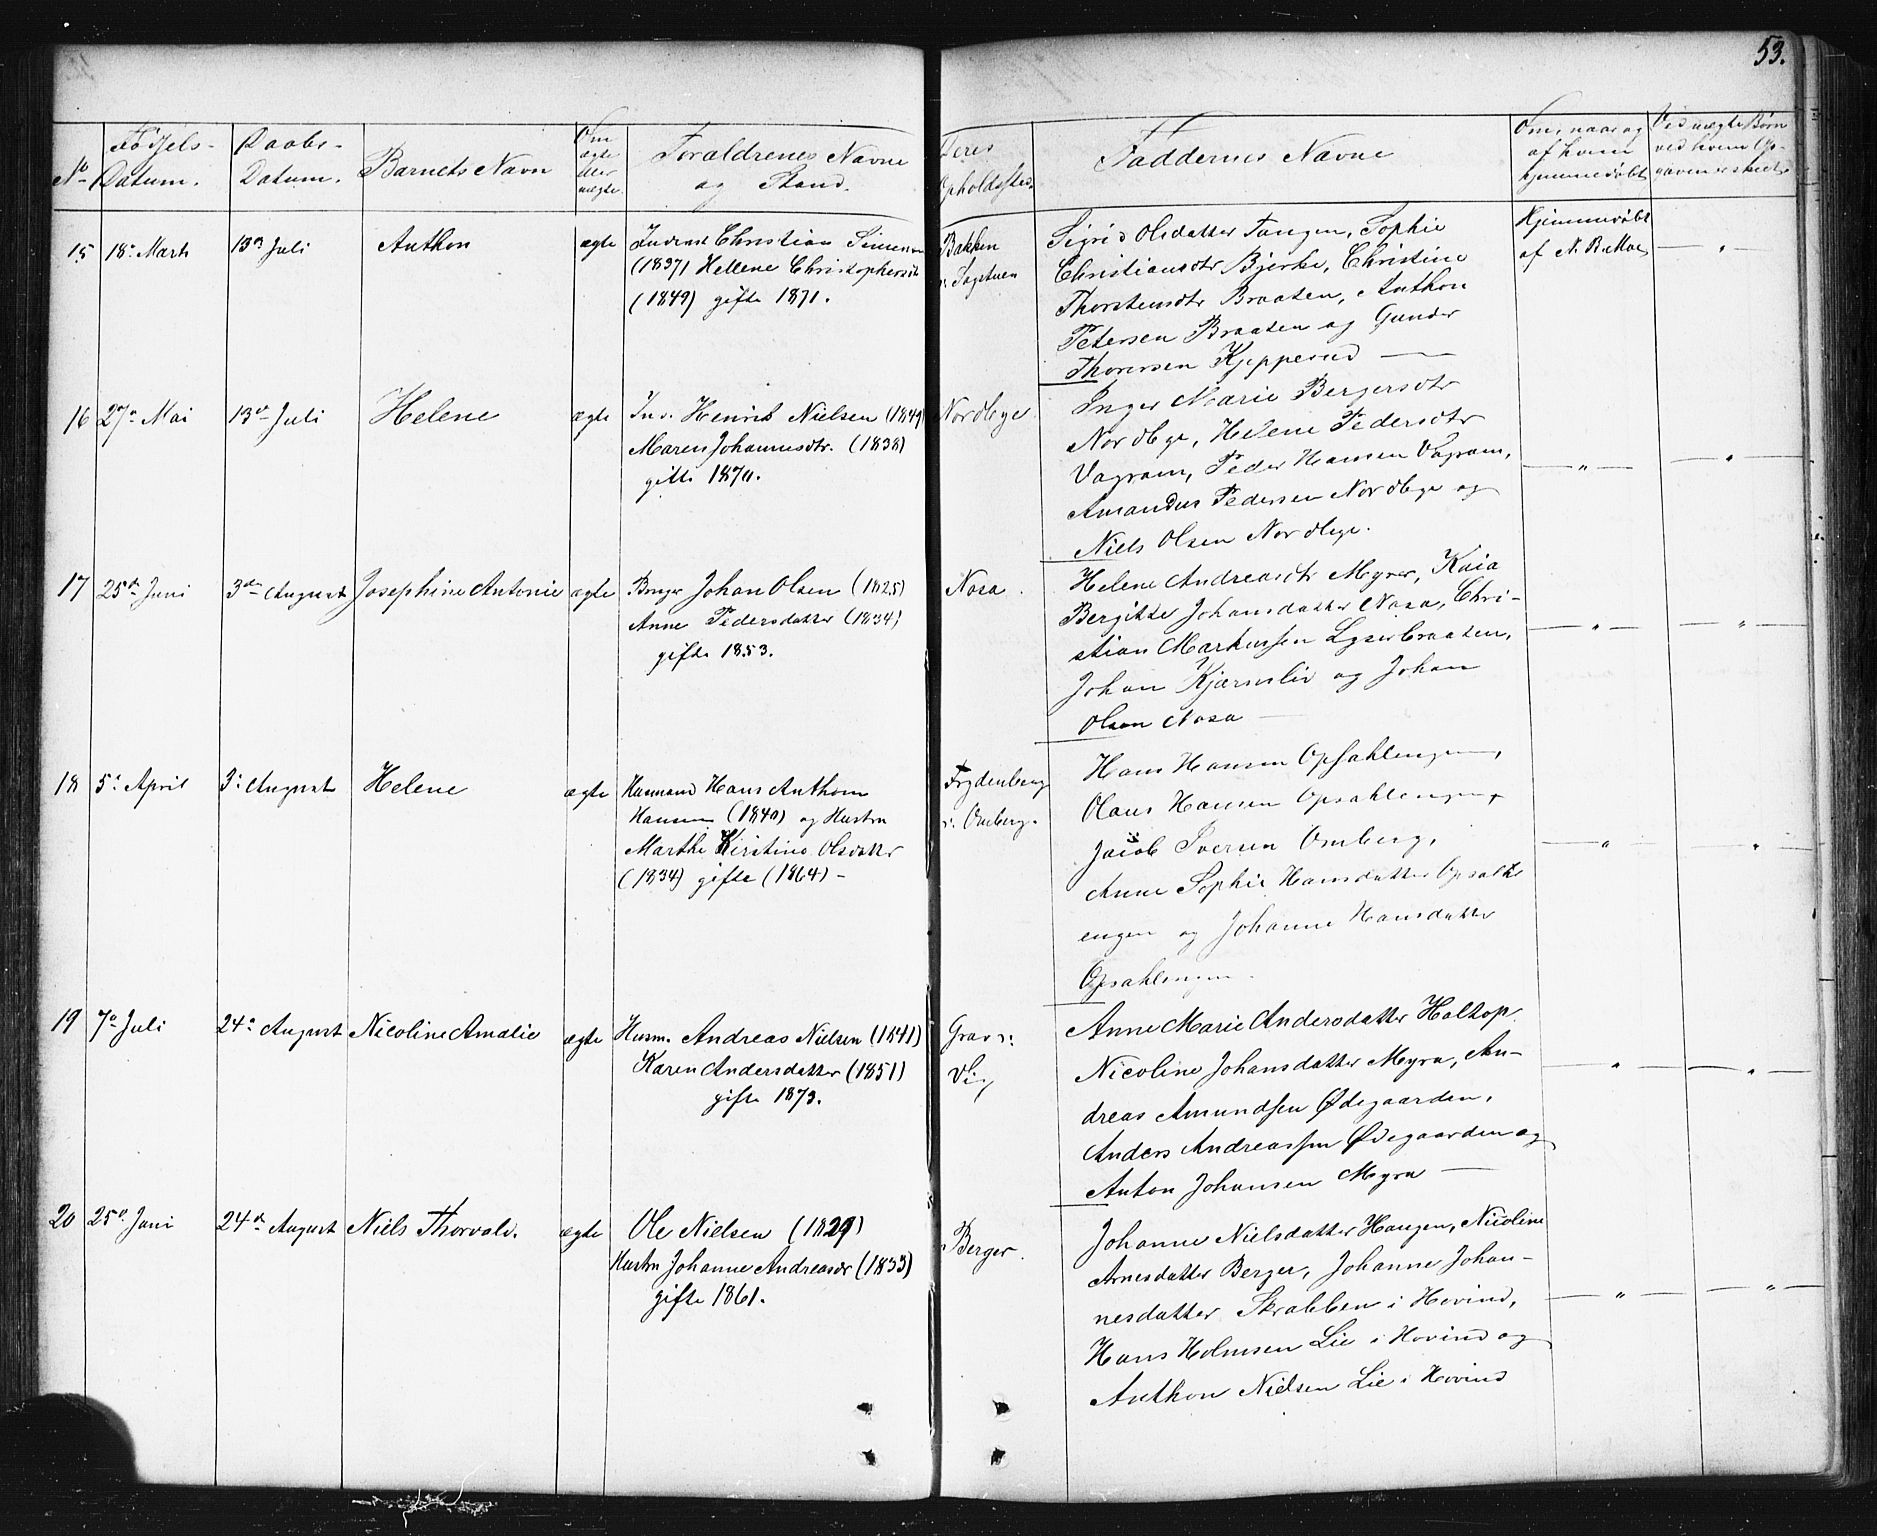 53.
No
Fødsels-
Datum.
Daabs-
Datum.
Barnets Navn
Om
ægte
eller
uægte.
Forældrenes Navne
og Stand.
Deres
Opholdssted
Faddernes Navne
Om, naar og
af hvem
hjemmedøbt
Ved uægte Børn
ved hvem Op-
gaven er skeet
15 18. Marts 13de Juli Anthon ægte
Inderst Christian Simensen
(1837) Hellene Christophersdtr
(1849) gifte 1871.
Bakken
Sagstuen
Sigrid Olsdatter Tangen, Sophie
Christiansdtr Bjerke, Christine
Thorstensdtr Braaten, Anthon
Petersen Braaten og Gunder
Thoresen Kjepperud —
Hjemmedøbt
af N. B. Moe — " —
16 27de Mai 13de Juli Helene ægte
Ind. Henrik Nielsen (1849)
Maren Johannesdtr. (1838)
gifte 1870.
Nordbye
Inger Marie Bergersdtr
Nordbye, Helene Pedersdtr
Vagram, Peder Hansen Vagram,
Amandus Pedersen Nordbye og
Niels Olsen Nordbye.
— " — — " —
17 25de Juni 3de August Josephine Antonie ægte
Bruger Johan Olsen (1825)
Anne Pedersdatter (1834)
gifte 1853.
Nosa
Helene Andreasdtr Myrer, Kaia
Bergitte Johansdatter Nosa, Chri-
stian Markussen Lyserbraaten,
Johan Kjærnslie og Johan
Olsen Nosa —
— " — — " —
18 5. April 3. August Helene ægte
Husmand Hans Anthon
Hansen (1840) og Hustru
Marthe Kirstine Olsdatter
(1834) gifte (1864) -
Frydenberg
v. Omberg.
Hans Hansen Opsahlengen,
Olaus Hansen Opsahlengen,
Jacob Iversen Omberg,
Anne Sophie Hansdatter Opsahl
engen og Johanne Hansdatter
Opsahlengen.
— " — — " —
19 7de Juli 24de August Nicoline Amalie ægte
Husm. Andreas Nielsen (1841)
Karen Andersdatter (1851)
gifte 1873.
Grav v.
Vig
Anne Marie Andersdatter Haltop
Nicoline Johansdatter Myra, An-
dreas Amundsen Ødegaarden,
Anders Andreassen Ødegaarden og
Anton Johansen Myra —
— " — — " —
20 25de Juni 24de August Niels Thorvald. ægte
Ole Nielsen (1829)
Hustru Johanne Andreasdr (1833)
gifte 1861.
Berger.
Johanne Nielsdatter Haugen, Nicoline
Arnesdatter Berger, Johanne Johan-
nesdatter Skrabben i Hovind,
Hans Holmsen Lie i Hovind og
Anthon Nielsen Lie i Hovind
— " — — " —